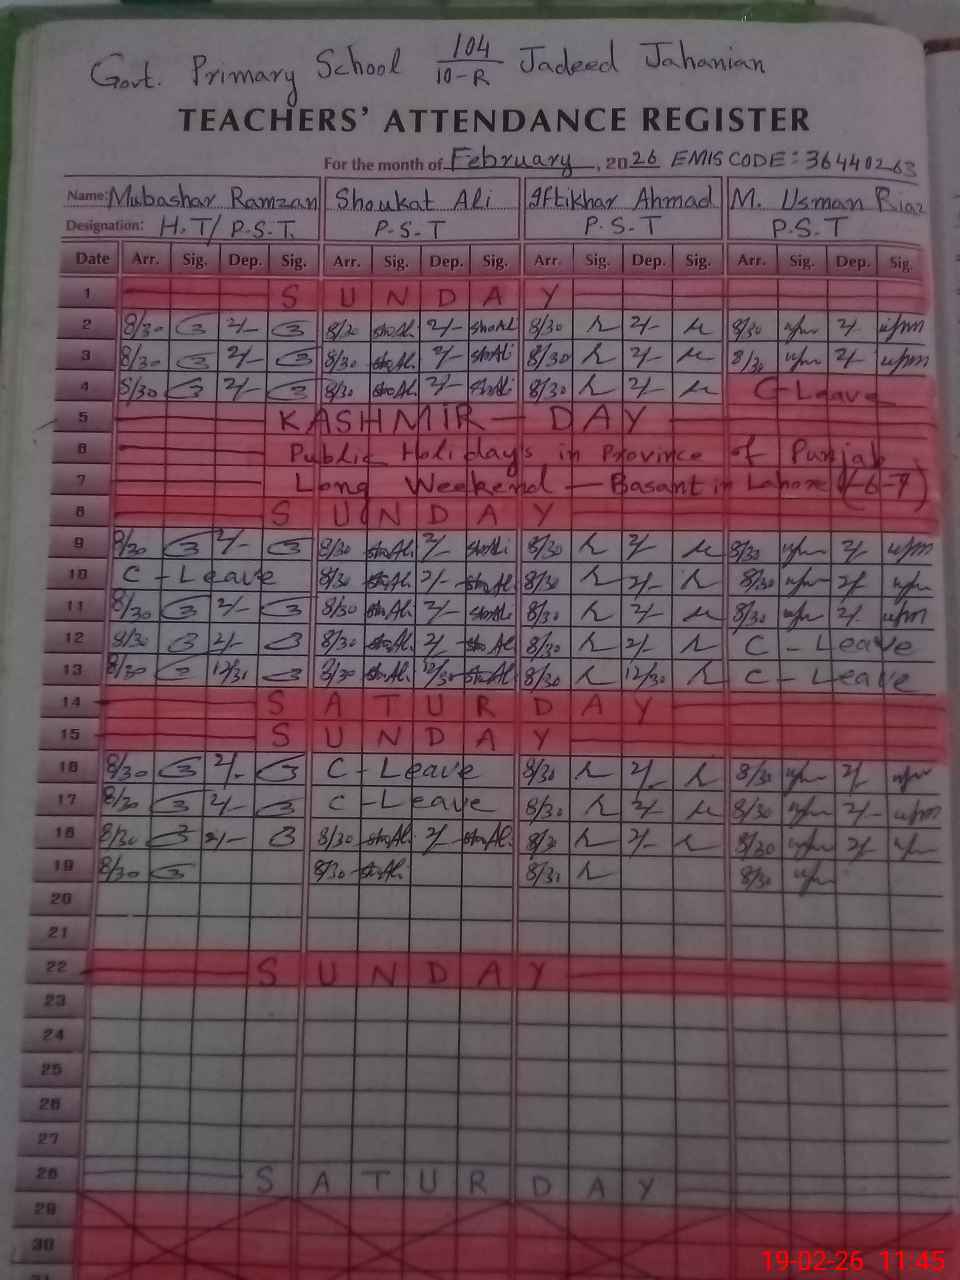 Govt. Primary School 104/10-R Jadeed Jahanian
TEACHERS' ATTENDANCE REGISTER
For the month of February, 2026 EMIS CODE: 36440263
Name: Mubashar Ramzan Shoukat Ali Iftikhar Ahmad M. Usman Riaz
Designation: H.T/P.S.T. P.S.T P.S.T P.S.T
Date Arr. Sig. Dep. Sig. Arr. Sig. Dep. Sig. Arr. Sig. Dep. Sig. Arr. Sig. Dep. Sig.
1 SUNDAY
2 8/30 2/- 8/30 2/- 8/30 2/- 8/30 2/-
3 8/30 2/- 8/30 2/- 8/30 2/- 8/30 2/-
4 8/30 2/- 8/30 2/- 8/30 2/- C-Leave
5 KASHMIR - DAY
6 Public Holidays in Province of Punjab
7 Long Weekend - Basant in Lahore
8 SUNDAY
9 8/30 2/- 8/30 2/- 8/30 2/- 8/30 2/-
10 C-Leave 8/30 2/- 8/30 2/- 8/30 2/-
11 8/30 2/- 8/30 2/- 8/30 2/- 8/30 2/-
12 8/30 2/- 8/30 2/- 8/30 2/- C - Leave
13 8/30 12/30 8/30 12/30 8/30 12/30 C - Leave
14 SATURDAY
15 SUNDAY
16 8/30 2/- C-Leave 8/30 2/- 8/30 2/-
17 8/30 2/- C-Leave 8/30 2/- 8/30 2/-
18 8/30 2/- 8/30 2/- 8/30 2/- 8/30 2/-
19 8/30 8/30 8/30 8/30
20
21
22 SUNDAY
23
24
25
26
27
28 SATURDAY
29
30
19-02-26 11:45